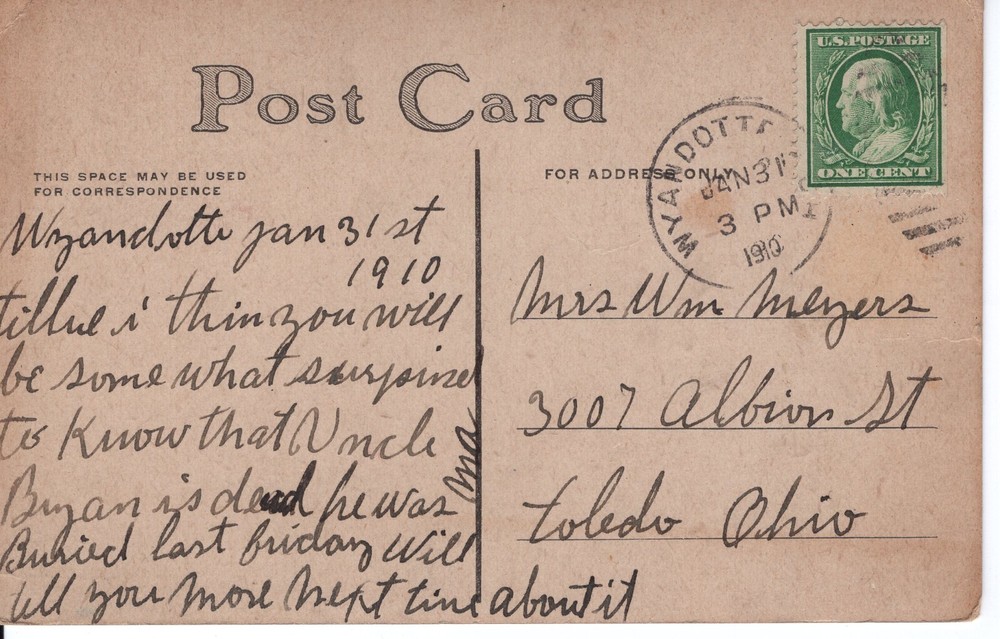 Post Card
THIS SPACE MAY BE USED
FOR CORRESPONDENCE
Wyandotte Jan 31st
1910
tillie i thin you will
be some what surpised
to Know that Uncle
Bryan is dead he was
Buried last friday Will
tell you more next time about it
ma
FOR ADDRESS ONLY
U.S. POSTAGE
ONE CENT
WYANDOTTE
JAN 31
3 PM
1910
Mrs Wm Meyers
3007 Albion St
toledo Ohio